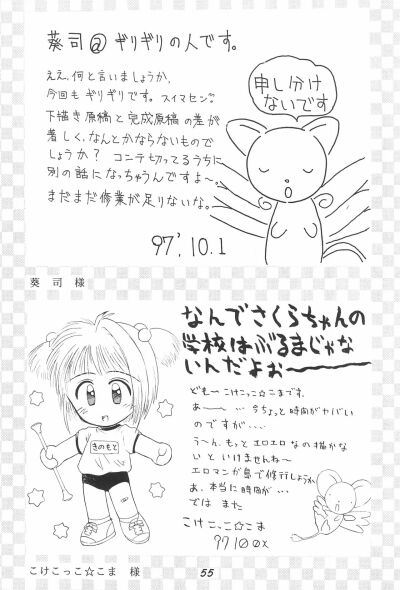 葵司@ギリギリの人です。
ええ、何と言いましょうか、
今回もギリギリです。スイマセン。
下描き原稿と完成原稿の差が
着しく、なんとかならないもので
しょうか？ コンテ切ってるうちに
別の話になっちゃうんですよ～。
まだまだ修業が足りないな。
97'.10.1
申し分け
ないです
葵司 様
なんでさくらちゃんの
学校はぶるまじゃな
いんだよぉ～
ども～こけこっこ☆こまです。
あ～～ … 今ちょっと時間がヤバい
のですが‥‥
う～ん、もっとエロエロなの描かな
いといけませんね～
エロマンガ島で修行しようか
あ、本当に時間が…
では また
こけこっこ☆こま
97 10 0x
きのもと
こけこっこ☆こま 様
55